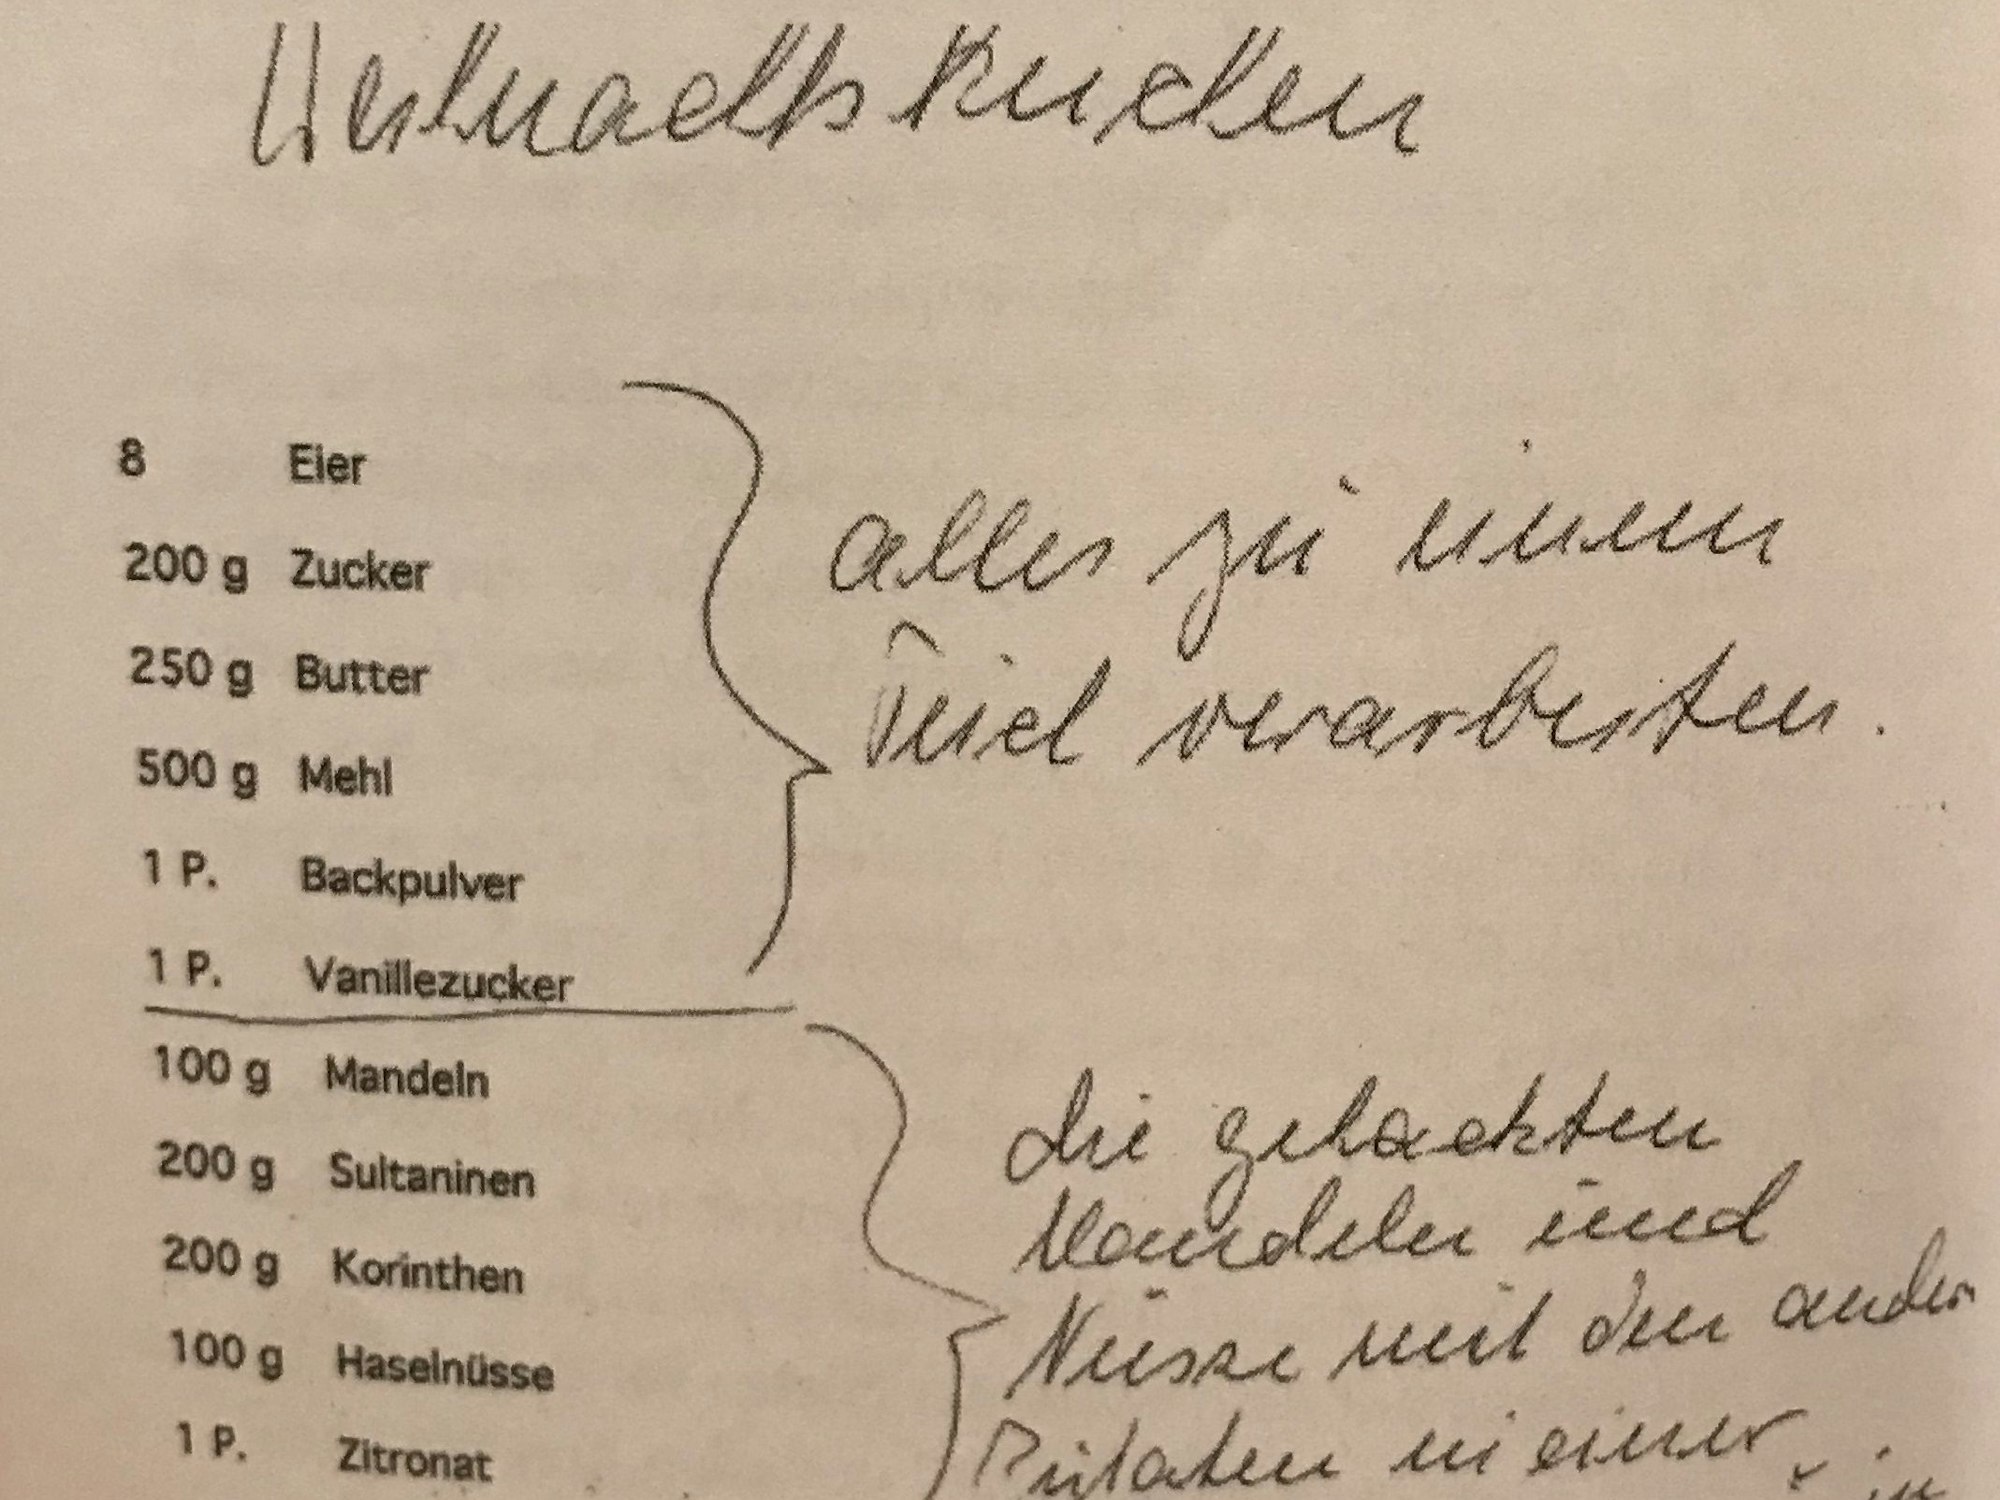 Weihnachtskuchen
8 Eier
200 g Zucker
250 g Butter
500 g Mehl
1 P. Backpulver
1 P. Vanillezucker
alles zu einem
Teich verarbeiten.
100 g Mandeln
200 g Sultaninen
200 g Korinthen
100 g Haselnüsse
1 P. Zitronat
die gehackten
Mandeln und
Nüsse mit den andern
Zutaten in einer